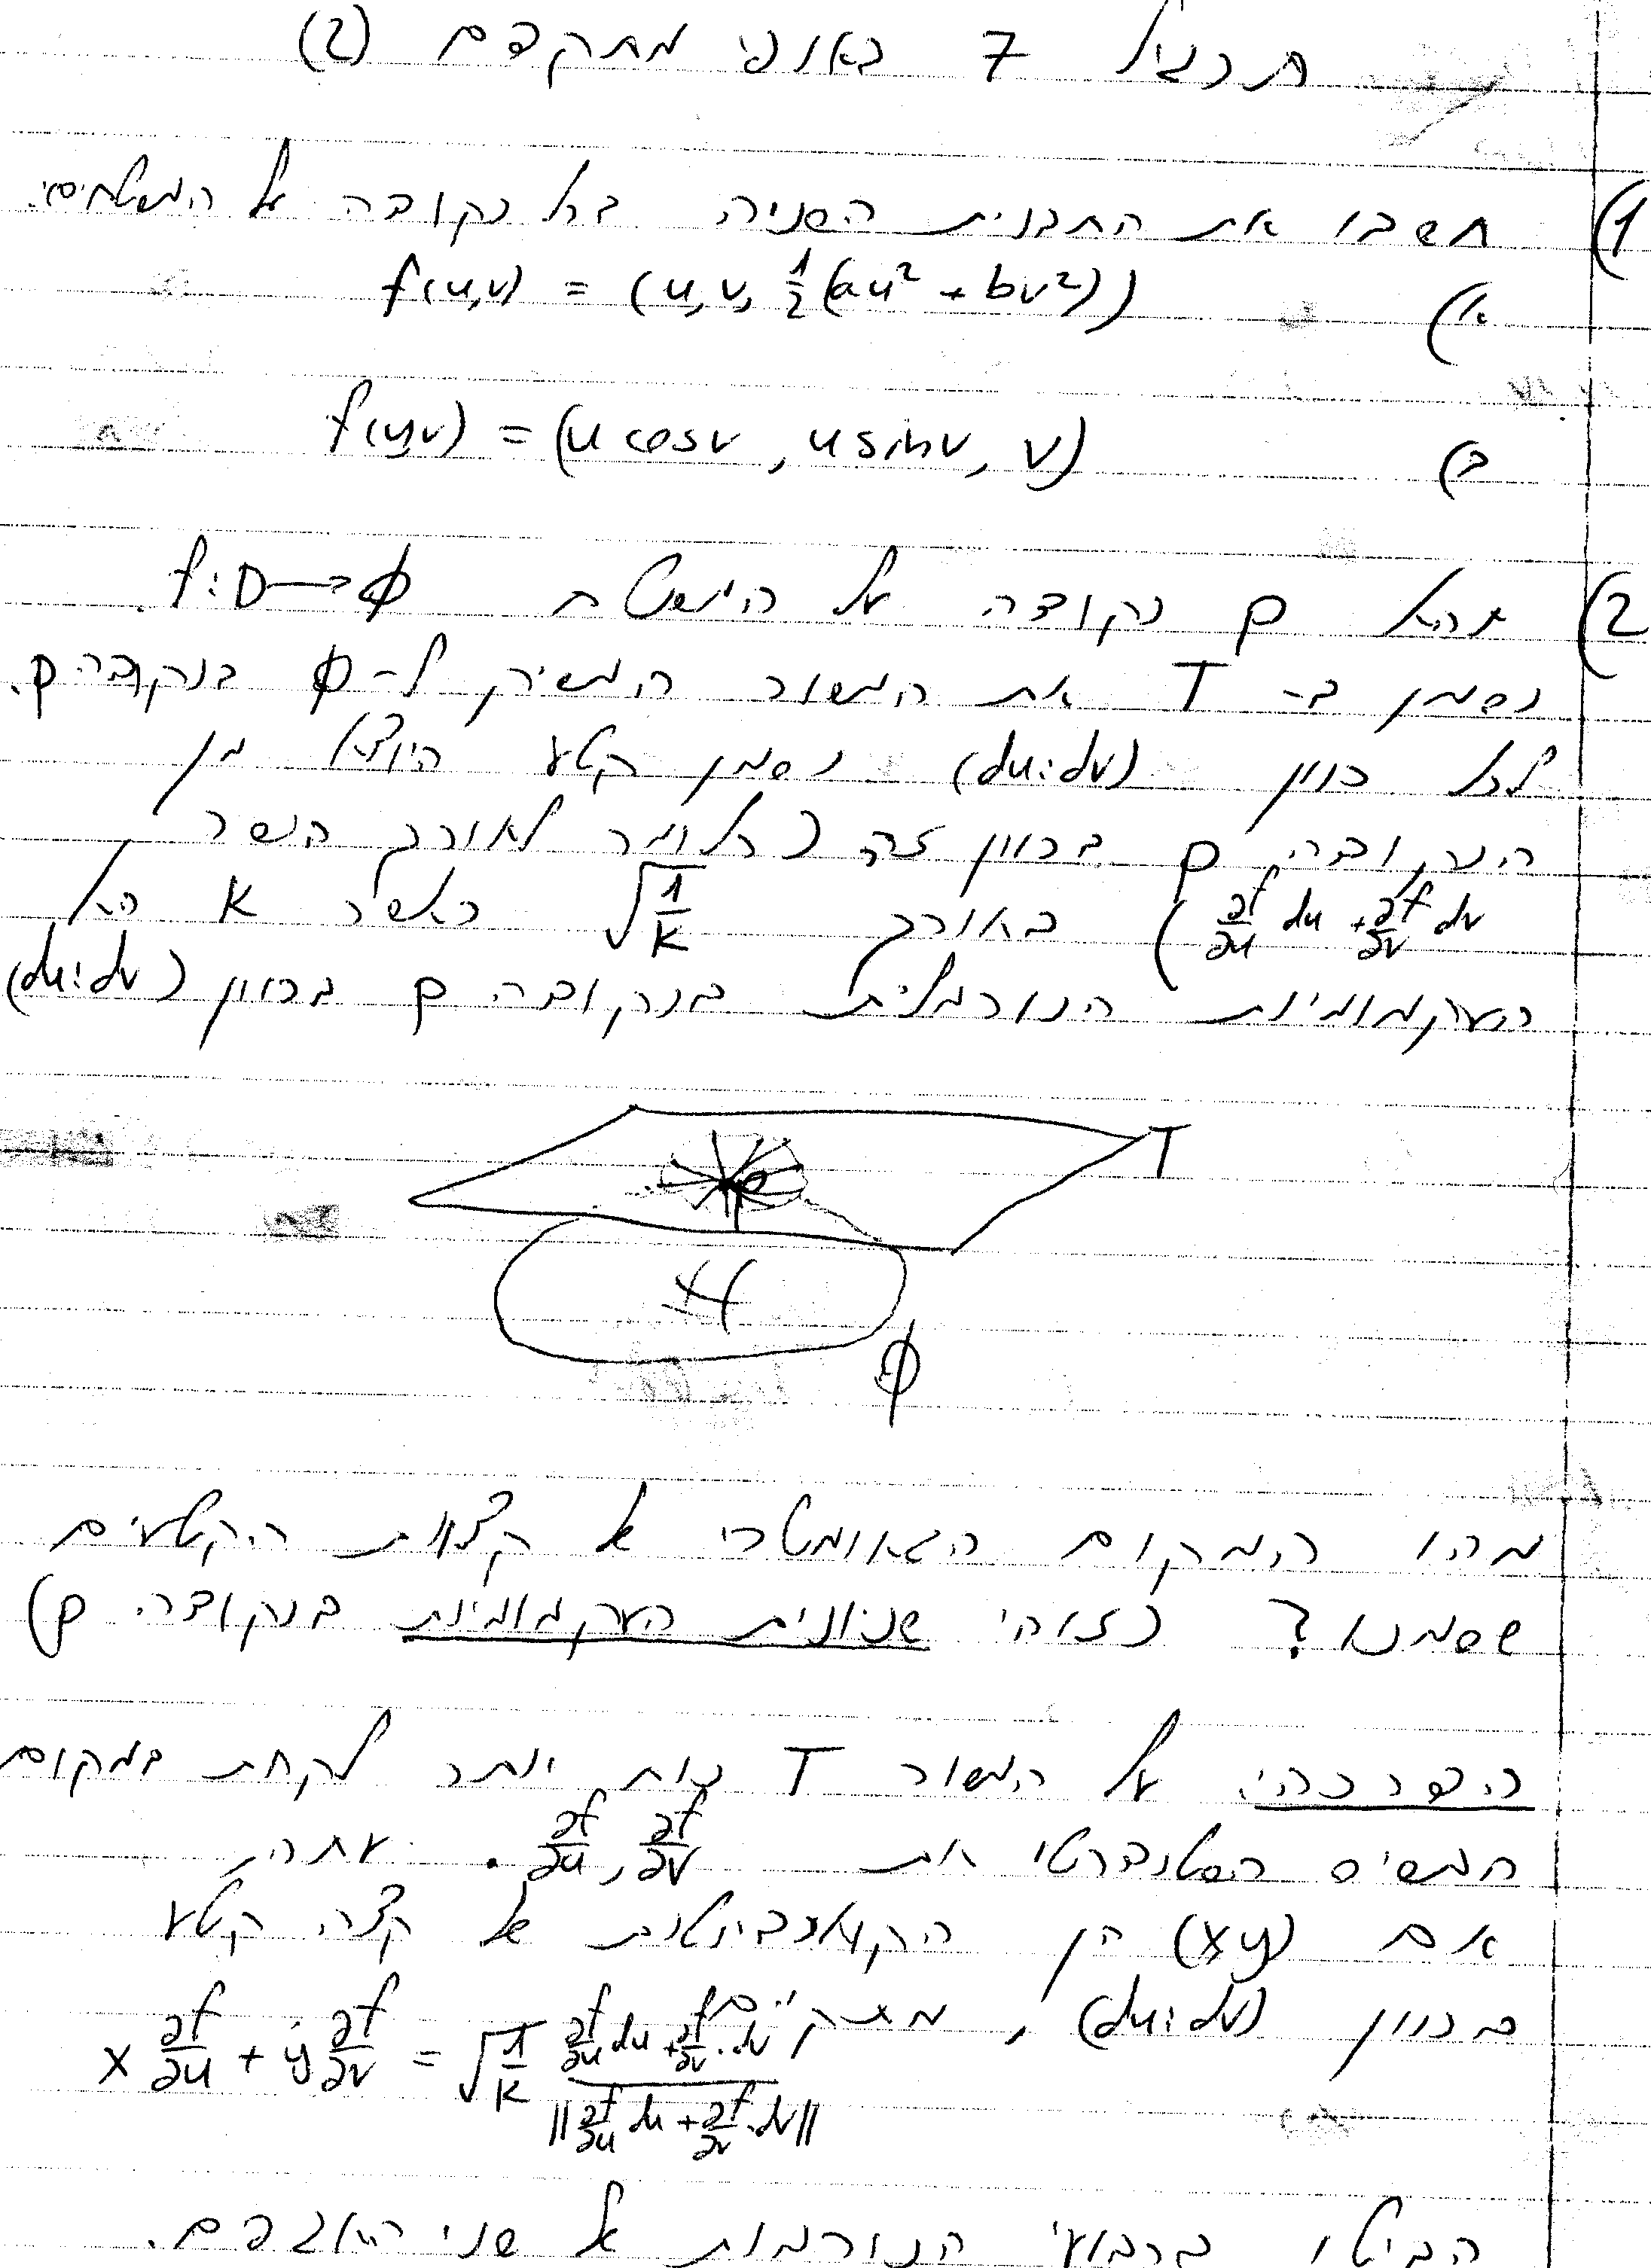 תרגיל 7 באנפי מתקדם (2)
1) חשבו את התבנית השניה בכל נקודה של המשטחים:
א) f(u,v) = (u,v, ½(au² + bv²))
ב) f(u,v) = (u cosv, u sinv, v)
2) תהא p נקודה על היריעה f: D→Φ.
נסמן ב- T את המישור המשיק ל- Φ בנקודה p.
לכל כוון (du:dv) נסמן קטע היוצא מן
הנקודה p בכוון זה (כלומר לאורך הישר
∂f/∂u du + ∂f/∂v dv) באורך √(1/K) כאשר K היא
העקמומיות הנורמלית בנקודה p בכוון (du:dv)
T
p
Φ
מהו המקום הגאומטרי של קצוות הקטעים
שסמנו? (זוהי שניונית העקמומיות בנקודה p)
הדרכה: על המישור T נוח יותר לקחת במקום
הבסיס הסטנדרטי את ∂f/∂u, ∂f/∂v. עתה,
אם (x,y) הן הקואורדינטות של קצה קטע
בכוון (du:dv), מתקיים
x ∂f/∂u + y ∂f/∂v = √(1/K) (∂f/∂u du + ∂f/∂v · dv) / ||∂f/∂u du + ∂f/∂v · dv||
הביטו בריבועי הנורמות של שני האגפים.